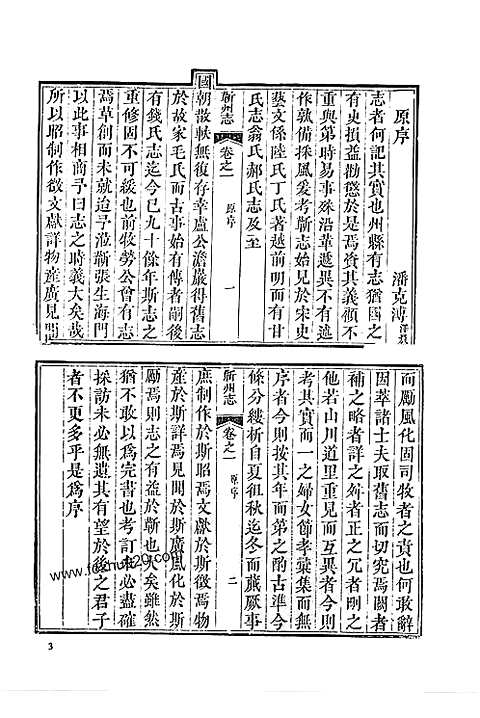 原序
潘克溥
志者何記其實也州縣有志猶國之
有史損益勸懲於是焉資其義顧不
重與第時易事殊沿革遞異不有述
作孰備採風爰考蘄志始見於宋史
藝文係陸氏丁氏著越前明而有甘
氏志翁氏郝氏志及至
蘄州志
卷之一
原序
一
國朝散軼無復存幸盧公澹巖得舊志
於故家毛氏而古事始有傳者嗣後
有錢氏志迄今已九十餘年斯志之
重修固不可緩也前牧勞公曾有志
焉草創而未就迨予涖蘄張生海門
以此事相商予曰志之時義大矣哉
所以昭制作徵文獻詳物產廣見聞
而勵風化固司牧者之責也何敢辭
因萃諸士夫取舊志而切究焉闕者
補之略者詳之舛者正之冗者刪之
他若山川道里重見而互異者今則
考其實而一之婦女節孝彙集而無
序者今則按其年而第之酌古準今
條分縷析自夏徂秋迄冬而蕆厥事
蘄州志
卷之一
原序
二
庶制作於斯昭焉文獻於斯徵焉物
產於斯詳焉見聞於斯廣焉風化於斯
勵焉則志之有益於蘄也大矣雖然
猶不敢以為完書也考訂未必盡確
採訪未必無遺其有望於後之君子
者不更多乎是為序
3